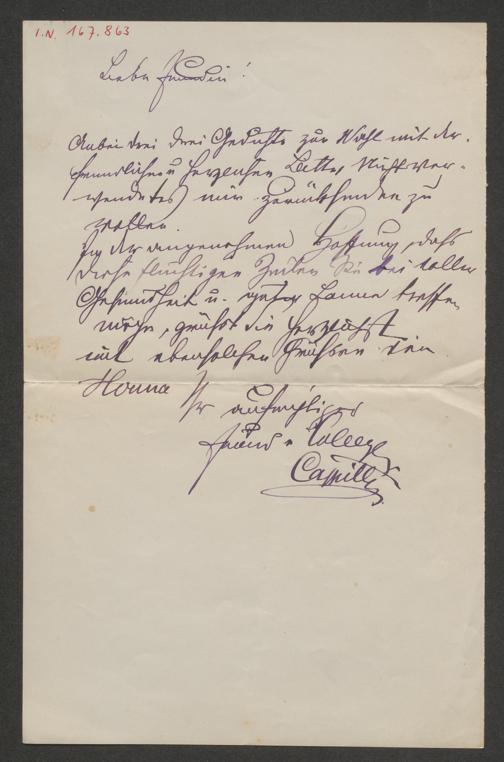 I.N. 167.863
Liebe Freundin!
Anbei drei Gedichte zur Wahl mit der
freundlichen u herzlichen Bitte, Nichtver-
wendetes mir zurücksenden zu
wollen.
In der angenehmen Hoffnung, dass
diese flüchtigen Zeilen Sie bei voller
Gesundheit u. guter Laune treffen
mögen, grüßt Sie herzlichst
mit ebensolchen Grüßen
Ihr aufrichtiger
Freund u College